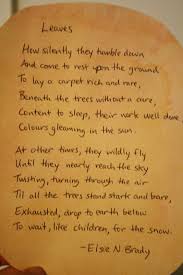 Leaves
How silently they tumble down
And come to rest upon the ground
To lay a carpet rich and rare,
Beneath the trees without a care,
Content to sleep, their work well done,
Colours gleaming in the sun.
At other times, they wildly fly
Until they nearly reach the sky
Twisting, turning through the air
Til all the trees stand stark and bare,
Exhausted, drop to earth below
To wait, like children, for the snow.
-Elsie N Brady